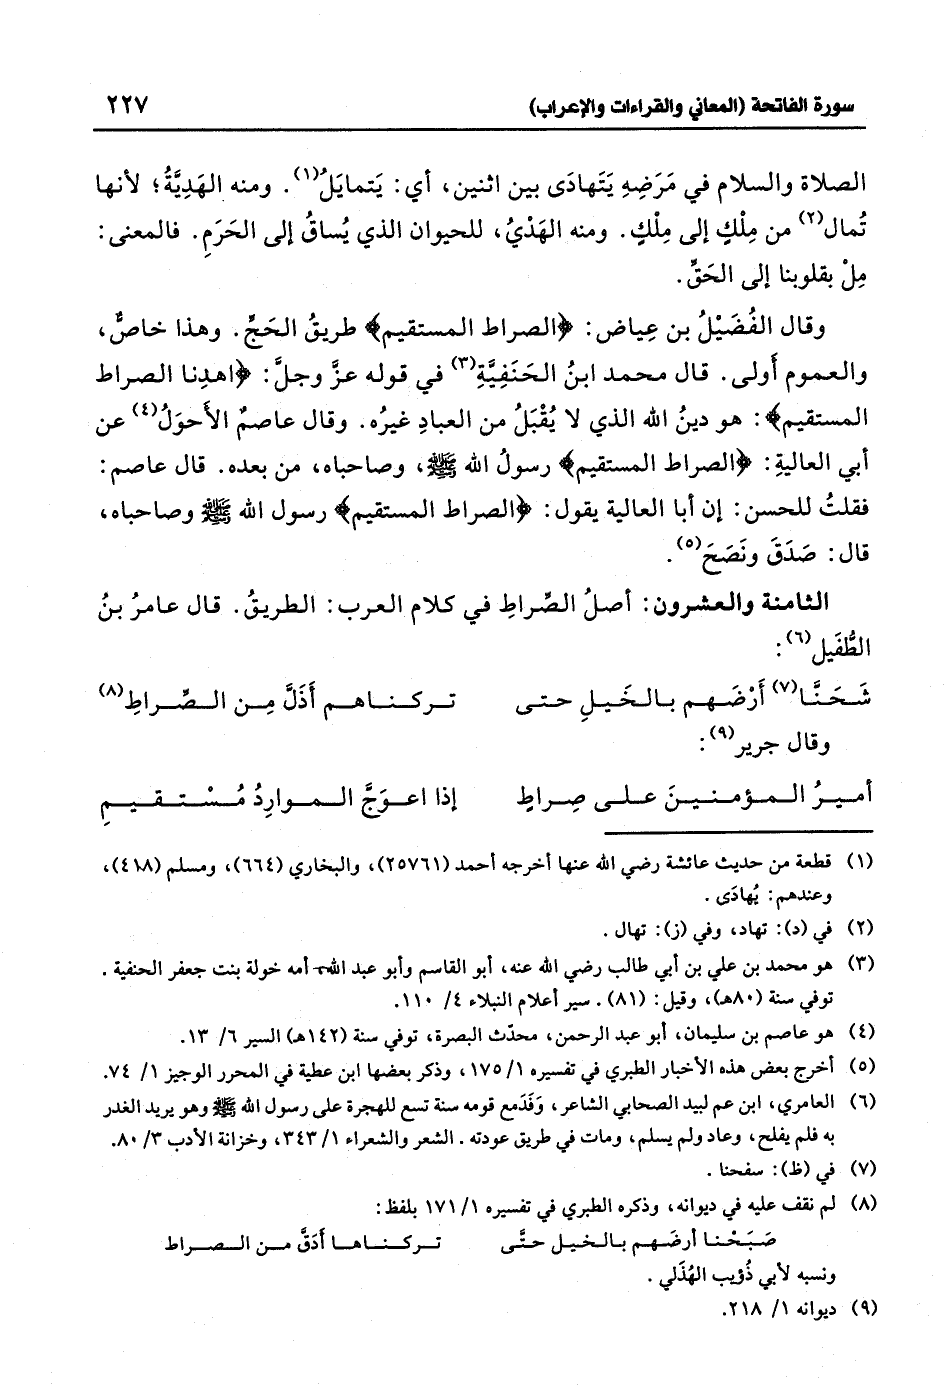 سورة الفاتحة (المعاني والقراءات والإعراب) ٢٢٧
الصلاة والسلام في مَرَضِهِ يَتَهادَى بين اثنين، أي: يَتمايَلُ(١). ومنه الهَدِيَّةُ؛ لأنها
تُمال(٢) من مِلْكٍ إلى مِلْكٍ. ومنه الهَدْيُ، للحيوان الذي يُساقُ إلى الحَرَمِ. فالمعنى:
مِلْ بقلوبنا إلى الحَقِّ.
وقال الفُضَيْلُ بن عِياض: ﴿الصراط المستقيم﴾ طريقُ الحَجِّ. وهذا خاصٌّ،
والعموم أَولى. قال محمد ابنُ الحَنَفِيَّةِ(٣) في قوله عزَّ وجلَّ: ﴿اهدِنا الصراط
المستقيم﴾: هو دينُ الله الذي لا يُقْبَلُ من العبادِ غيرُه. وقال عاصمٌ الأَحوَلُ(٤) عن
أبي العاليةِ: ﴿الصراط المستقيم﴾ رسولُ الله ﷺ، وصاحباه، من بعده. قال عاصم:
فقلتُ للحسن: إن أبا العالية يقول: ﴿الصراط المستقيم﴾ رسول الله ﷺ وصاحباه،
قال: صَدَقَ ونَصَحَ(٥).
الثامنة والعشرون: أصلُ الصِّراطِ في كلام العرب: الطريقُ. قال عامرُ بنُ
الطُّفَيل(٦):
شَحَنَّا(٧) أَرْضَهم بالخَيلِ حتى تركناهم أَذَلَّ مِن الصِّراطِ(٨)
وقال جرير(٩):
أميرُ المؤمنينَ على صِراطٍ إذا اعوَجَّ المواردُ مُسْتقيمِ
(١) قطعة من حديث عائشة رضي الله عنها أخرجه أحمد (٢٥٧٦١)، والبخاري (٦٦٤)، ومسلم (٤١٨)،
وعندهم: يُهادَى.
(٢) في (د): تهاد، وفي (ز): تهال.
(٣) هو محمد بن علي بن أبي طالب رضي الله عنه، أبو القاسم وأبو عبد الله، أمه خولة بنت جعفر الحنفية.
توفي سنة (٨٠هـ)، وقيل: (٨١). سير أعلام النبلاء ٤/ ١١٠.
(٤) هو عاصم بن سليمان، أبو عبد الرحمن، محدّث البصرة، توفي سنة (١٤٢هـ) السير ٦/ ١٣.
(٥) أخرج بعض هذه الأخبار الطبري في تفسيره ١/ ١٧٥، وذكر بعضها ابن عطية في المحرر الوجيز ١/ ٧٤.
(٦) العامري، ابن عم لبيد الصحابي الشاعر، وَفَدَمع قومه سنة تسع للهجرة على رسول الله ﷺ وهو يريد الغدر
به فلم يفلح، وعاد ولم يسلم، ومات في طريق عودته. الشعر والشعراء ١/ ٣٤٣، وخزانة الأدب ٣/ ٨٠.
(٧) في (ظ): سفحنا.
(٨) لم نقف عليه في ديوانه، وذكره الطبري في تفسيره ١/ ١٧١ بلفظ:
صَبَحْنا أرضَهم بالخيل حتَّى تركناها أَدَقَّ من الصراط
ونسبه لأبي ذُؤيب الهُذَلي.
(٩) ديوانه ١/ ٢١٨.